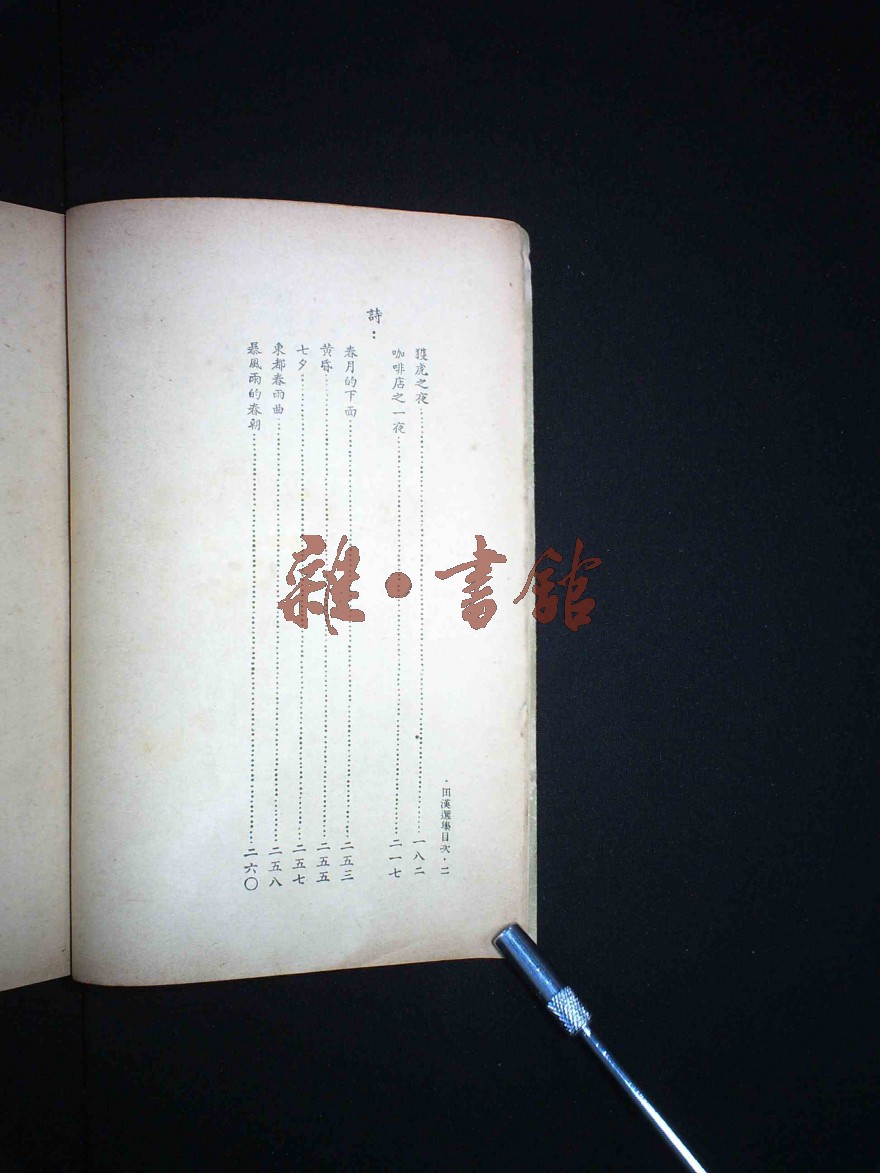 ·田漢選集目次·二
獲虎之夜……一八二
咖啡店之一夜……二一七
詩：
春月的下面……二五三
黃昏……二五五
七夕……二五七
東都春雨曲……二五八
暴風雨的春朝……二六〇
雜·書館